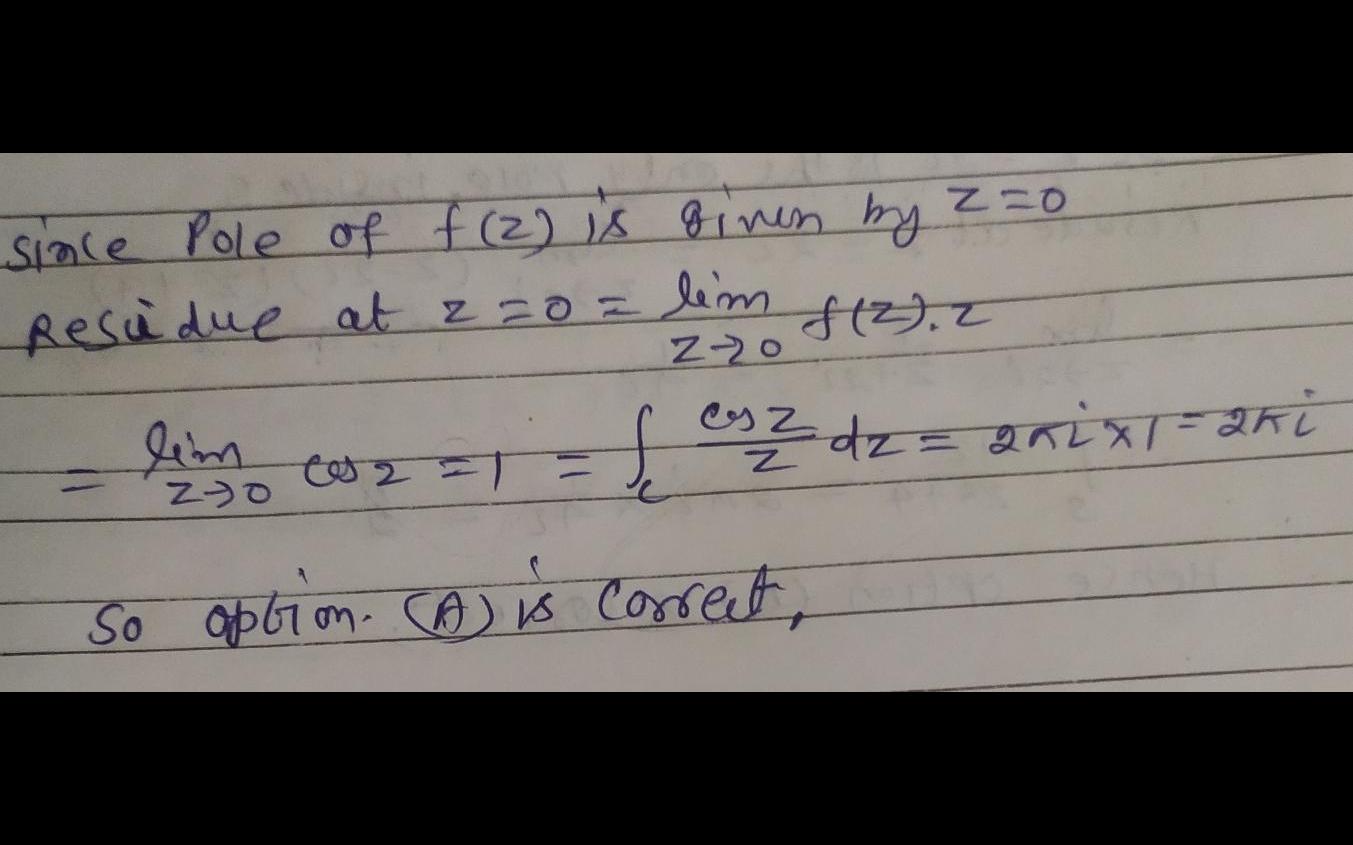 Since Pole of f(z) is given by z=0
Residue at z=0 = lim z→0 f(z).z
= lim z→0 cos z = 1 = ∫c cos z / z dz = 2πi×1 = 2πi
So option. (A) is correct,